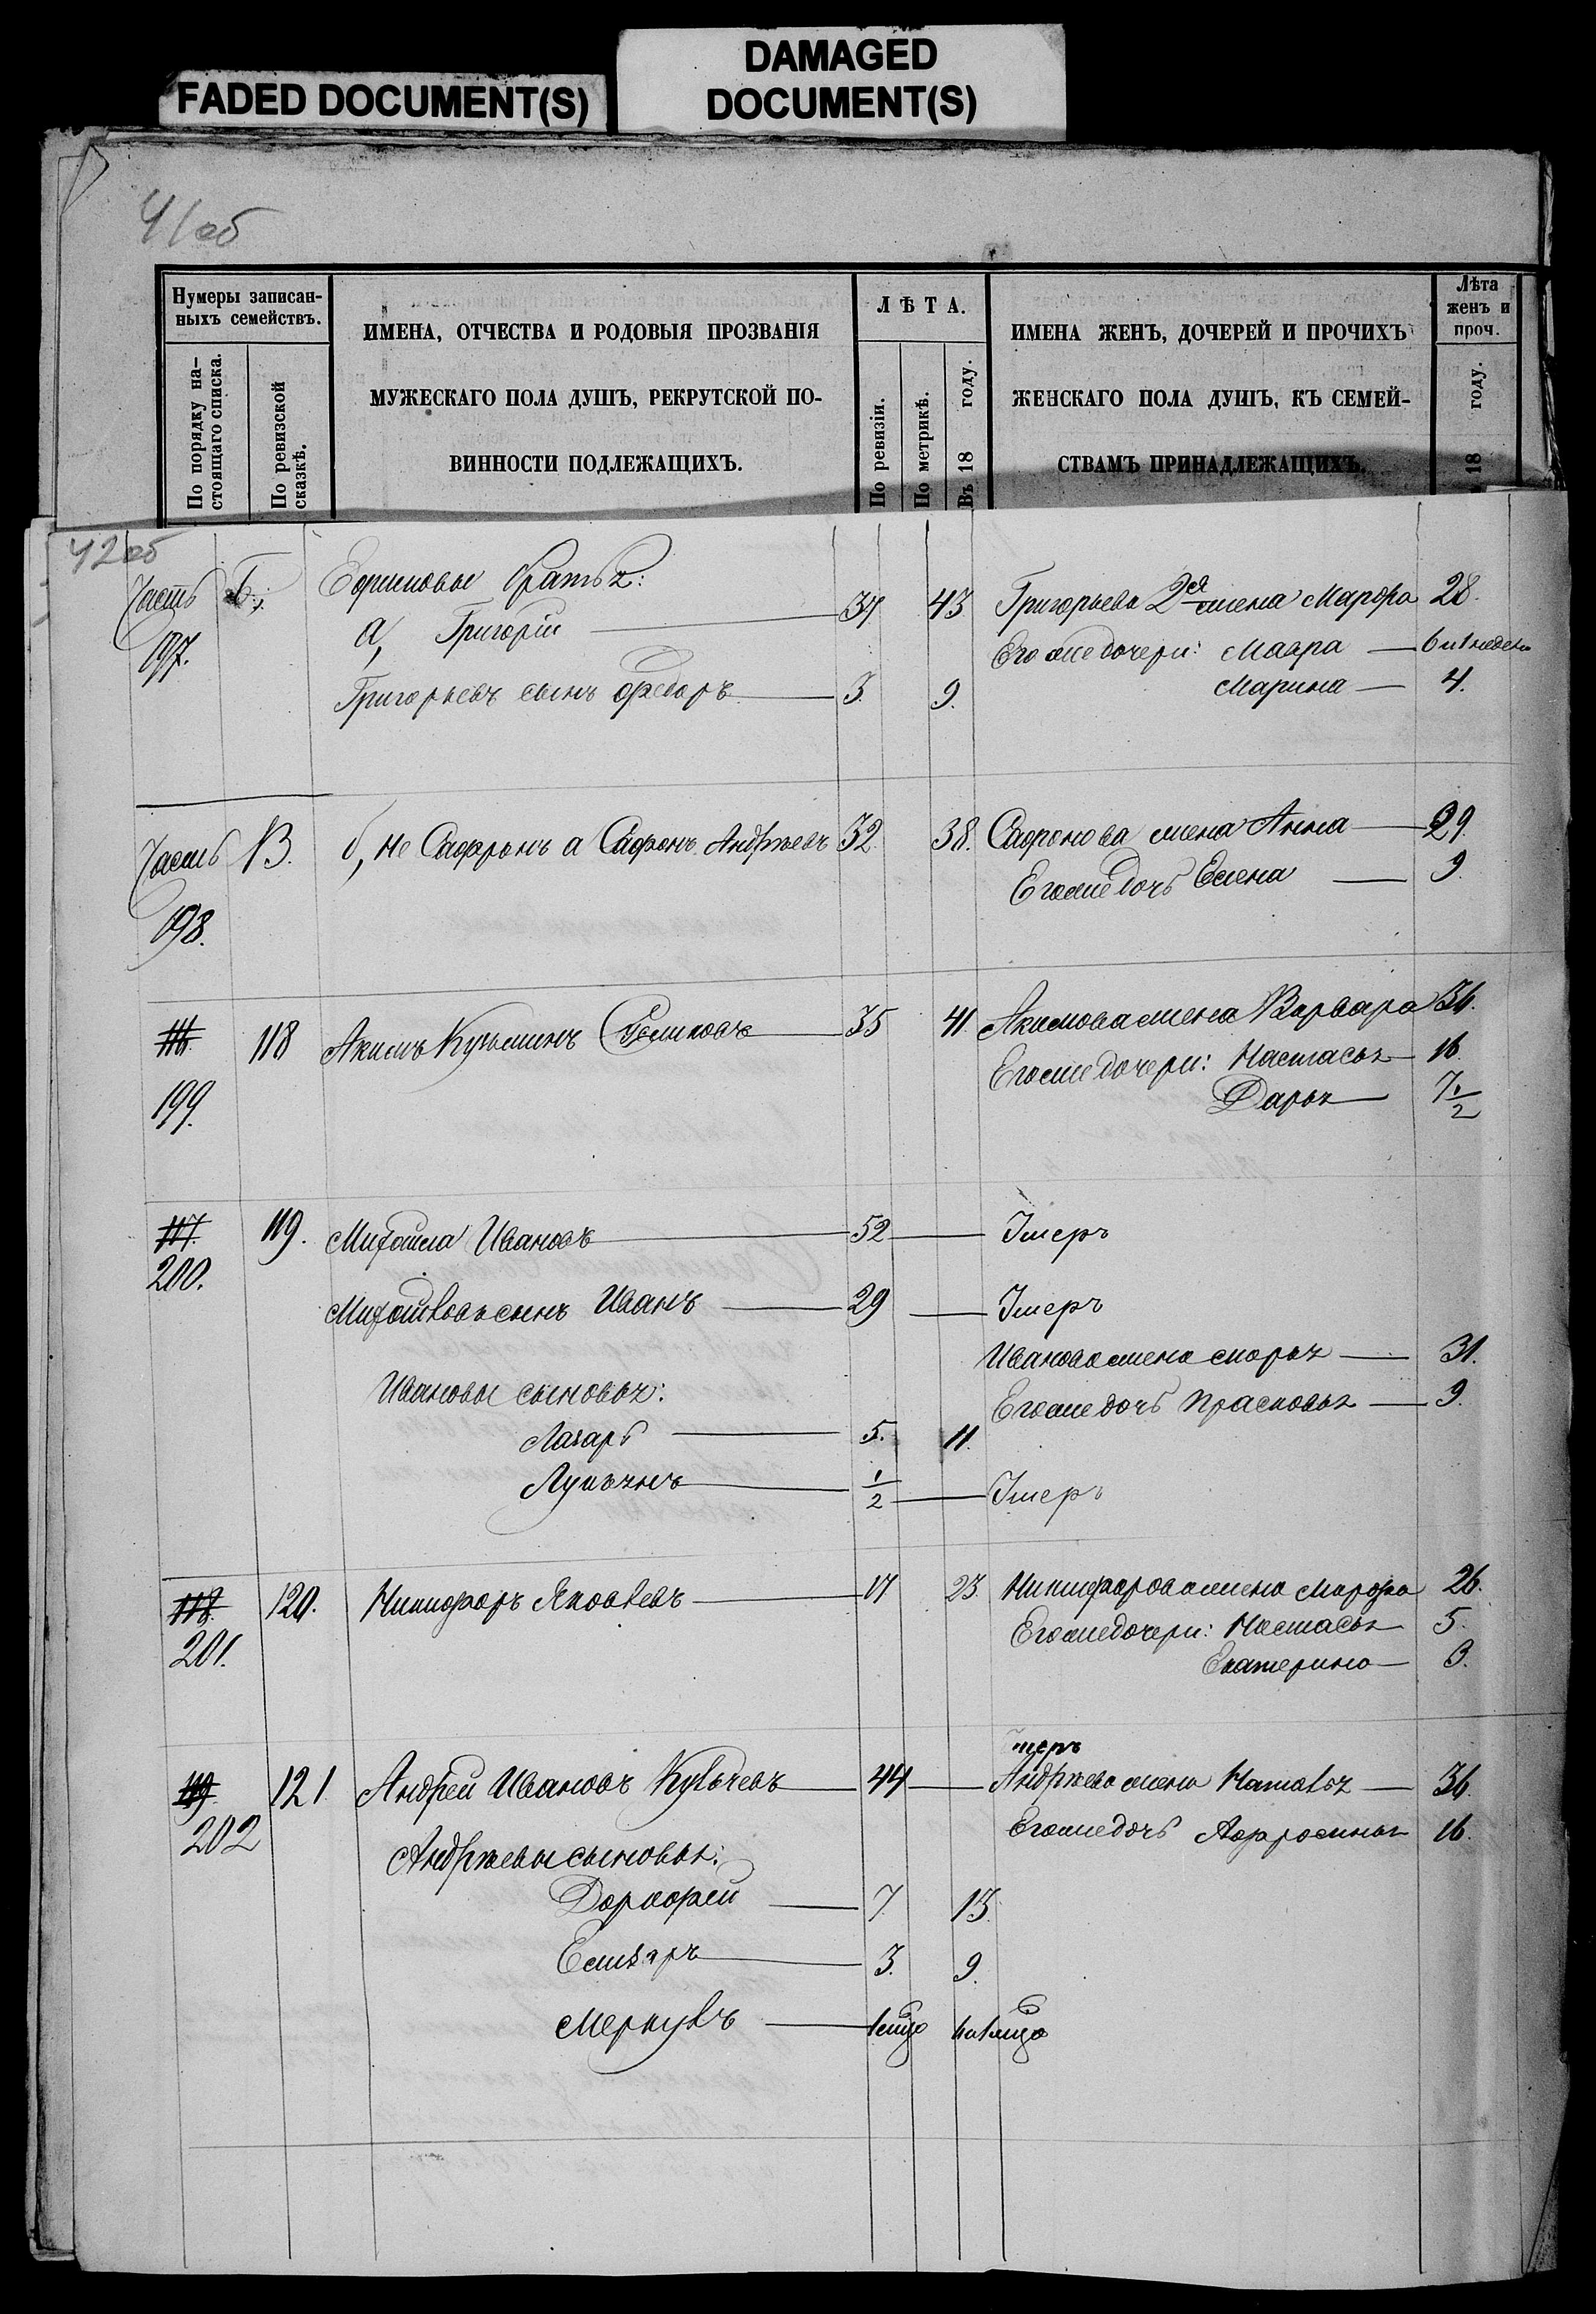 FADED DOCUMENT(S)
DAMAGED
DOCUMENT(S)
41об
Нумеры записан-
ныхъ семействъ.
По порядку на-
стоящаго списка.
По ревизской
сказкѣ.
ИМЕНА, ОТЧЕСТВА И РОДОВЫЯ ПРОЗВАНІЯ
МУЖЕСКАГО ПОЛА ДУШЪ, РЕКРУТСКОЙ ПО-
ВИННОСТИ ПОДЛЕЖАЩИХЪ.
ЛѢТА.
По ревизіи.
По метрикѣ.
Въ 18 году.
ИМЕНА ЖЕНЪ, ДОЧЕРЕЙ И ПРОЧИХЪ
ЖЕНСКАГО ПОЛА ДУШЪ, КЪ СЕМЕЙ-
СТВАМЪ ПРИНАДЛЕЖАЩИХЪ.
Лѣта
женъ и
проч.
18 году.
42об
Часть Б., Ефимовы братья:
197. а, Григорій 37 43 Григорьева 2ая жена Марфа 28.
Его же дочери: Мавра 6 и 1 недели
Григорьевъ сынъ Ѳедоръ 3. 9. Марина 4.
Часть В. б, не Сафронъ а Сафонъ Андрѣевъ 32 38. Сафонова жена Анна 29.
Его же дочь Елена 9.
198.
116. 118 Акимъ Кузьминъ 35 41 Акимова жена Варвара 36.
Его же дочери: Настасья 16.
199. Дарья 7 1/2
117. 119. Михайла Ивановъ 52 Умеръ
200.
Михайловъ сынъ Иванъ 29 Умеръ
Иванова жена Марья 31.
Ивановы сыновья: Его же дочь Прасковья 9.
Лазарь 5. 11.
Лукьянъ 1/2 Умеръ
118. 120. Никифоръ Яковлевъ 17 23. Никифорова жена Марфа 26.
201. Его же дочери: Настасья 5.
Екатерина 3.
умеръ
119. 121 Андрей Ивановъ 44 Андрѣева жена Наталья 36.
202 Его же дочь Афросинья 16.
Андрѣевы сыновья:
Дорофей 7. 13.
Елизаръ 3. 9.
Меркулъ